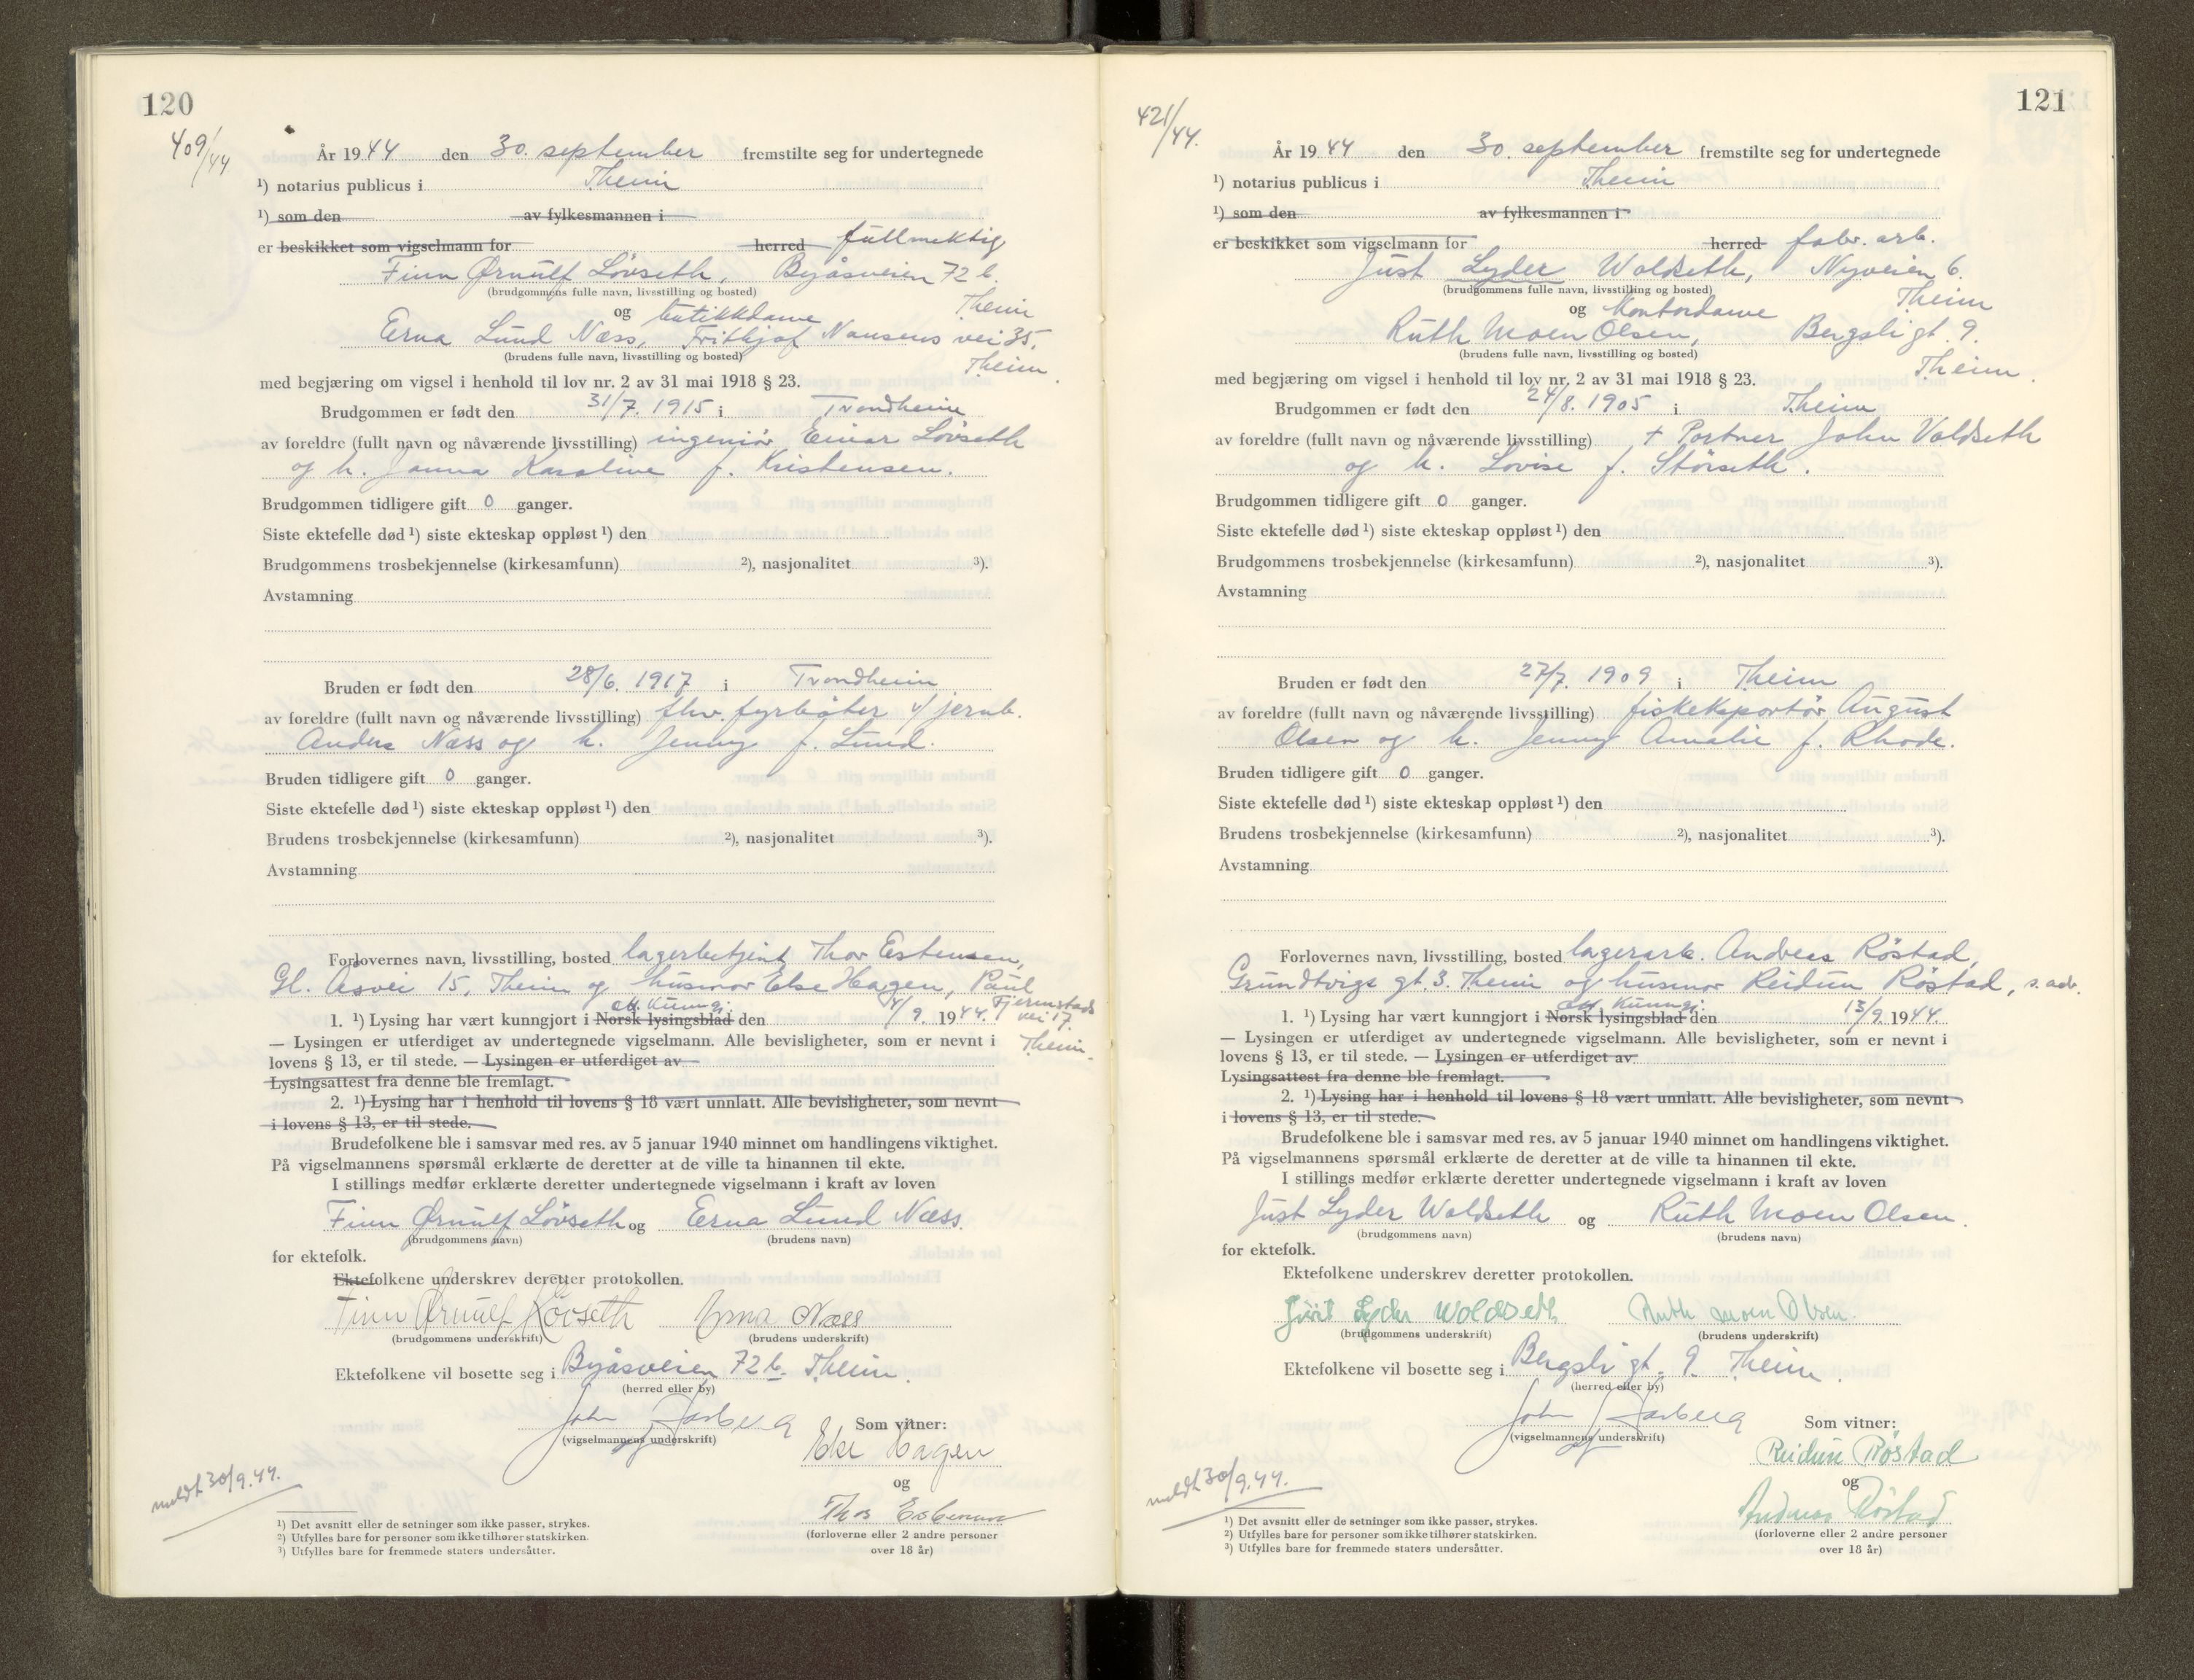 120
409/44
År 1944 den 30. september fremstilte seg for undertegnede
¹) notarius publicus i Theim
¹) som den av fylkesmannen i
er beskikket som vigselmann for herred fullmektig
Finn Ørnulf Lövseth, Byåsveien 72 b.
(brudgommens fulle navn, livsstilling og bosted)
Theim
og butikkdame
Erna Lund Næss, Frithjof Nansens vei 35,
(brudens fulle navn, livsstilling og bosted)
Theim.
med begjæring om vigsel i henhold til lov nr. 2 av 31 mai 1918 § 23.
Brudgommen er født den 31/7. 1915 i Trondheim
av foreldre (fullt navn og nåværende livsstilling) ingeniör Einar Lövseth
og h. Janna Karoline f. Kristensen.
Brudgommen tidligere gift 0 ganger.
Siste ektefelle død ¹) siste ekteskap oppløst ¹) den
Brudgommens trosbekjennelse (kirkesamfunn) ²), nasjonalitet ³).
Avstamning
Bruden er født den 28/6. 1917 i Trondheim
av foreldre (fullt navn og nåværende livsstilling) fhv. fyrbøter v/ jernb.
Anders Næss og h. Jenny f. Lund.
Bruden tidligere gift 0 ganger.
Siste ektefelle død ¹) siste ekteskap oppløst ¹) den
Brudens trosbekjennelse (kirkesamfunn) ²), nasjonalitet ³).
Avstamning
Forlovernes navn, livsstilling, bosted lagerbetjent Thor Estensen,
Gl. Åsvei 15, Theim og husmor Else Hagen, Paul
Fjermstads
off. kunngj.
1. ¹) Lysing har vært kunngjort i Norsk lysingsblad den 4/9. 1944. vei 17.
Theim.
— Lysingen er utferdiget av undertegnede vigselmann. Alle bevisligheter, som er nevnt i
lovens § 13, er til stede. — Lysingen er utferdiget av
Lysingsattest fra denne ble fremlagt.
2. ¹) Lysing har i henhold til lovens § 18 vært unnlatt. Alle bevisligheter, som nevnt
i lovens § 13, er til stede.
Brudefolkene ble i samsvar med res. av 5 januar 1940 minnet om handlingens viktighet.
På vigselmannens spørsmål erklærte de deretter at de ville ta hinannen til ekte.
I stillings medfør erklærte deretter undertegnede vigselmann i kraft av loven
Finn Ørnulf Lövseth og Erna Lund Næss.
(brudgommens navn) (brudens navn)
for ektefolk.
Ektefolkene underskrev deretter protokollen.
Finn Ørnulf Lövseth Erna Næss
(brudgommens underskrift) (brudens underskrift)
Ektefolkene vil bosette seg i Byåsveien 72 b. Theim.
(herred eller by)
John Aarberg
(vigselmannens underskrift)
Som vitner:
Else Hagen
og
Thor Estensen
(forloverne eller 2 andre personer
over 18 år)
meldt 30/9.44.
¹) Det avsnitt eller de setninger som ikke passer, strykes.
²) Utfylles bare for personer som ikke tilhører statskirken.
³) Utfylles bare for fremmede staters undersåtter.
121
421/44.
År 1944 den 30. september fremstilte seg for undertegnede
¹) notarius publicus i Theim
¹) som den av fylkesmannen i
er beskikket som vigselmann for herred fabr. arb.
Just Lyder Woldseth, Nyveien 6.
(brudgommens fulle navn, livsstilling og bosted)
Theim
og Kontordame
Ruth Moen Olsen, Bergsli gt. 9.
(brudens fulle navn, livsstilling og bosted)
Theim.
med begjæring om vigsel i henhold til lov nr. 2 av 31 mai 1918 § 23.
Brudgommen er født den 24/8. 1905 i Theim
av foreldre (fullt navn og nåværende livsstilling) + Portner John Valdseth
og h. Lovise f. Störseth.
Brudgommen tidligere gift 0 ganger.
Siste ektefelle død ¹) siste ekteskap oppløst ¹) den
Brudgommens trosbekjennelse (kirkesamfunn) ²), nasjonalitet ³).
Avstamning
Bruden er født den 27/7. 1909 i Theim
av foreldre (fullt navn og nåværende livsstilling) fiskeksportör August
Olsen og h. Jenny Amalie f. Rhode.
Bruden tidligere gift 0 ganger.
Siste ektefelle død ¹) siste ekteskap oppløst ¹) den
Brudens trosbekjennelse (kirkesamfunn) ²), nasjonalitet ³).
Avstamning
Forlovernes navn, livsstilling, bosted lagerarb. Andreas Röstad,
Grundtvigs gt. 3. Theim og husmor Reidun Röstad, s. adr.
off. kunngj.
1. ¹) Lysing har vært kunngjort i Norsk lysingsblad den 13/9. 1944.
— Lysingen er utferdiget av undertegnede vigselmann. Alle bevisligheter, som er nevnt i
lovens § 13, er til stede. — Lysingen er utferdiget av
Lysingsattest fra denne ble fremlagt.
2. ¹) Lysing har i henhold til lovens § 18 vært unnlatt. Alle bevisligheter, som nevnt
i lovens § 13, er til stede.
Brudefolkene ble i samsvar med res. av 5 januar 1940 minnet om handlingens viktighet.
På vigselmannens spørsmål erklærte de deretter at de ville ta hinannen til ekte.
I stillings medfør erklærte deretter undertegnede vigselmann i kraft av loven
Just Lyder Woldseth og Ruth Moen Olsen.
(brudgommens navn) (brudens navn)
for ektefolk.
Ektefolkene underskrev deretter protokollen.
Just Lyder Woldseth Ruth Moen Olsen.
(brudgommens underskrift) (brudens underskrift)
Ektefolkene vil bosette seg i Bergsli gt. 9. Theim.
(herred eller by)
John Aarberg
(vigselmannens underskrift)
Som vitner:
Reidun Röstad
og
Andreas Röstad
(forloverne eller 2 andre personer
over 18 år)
meldt 30/9.44.
¹) Det avsnitt eller de setninger som ikke passer, strykes.
²) Utfylles bare for personer som ikke tilhører statskirken.
³) Utfylles bare for fremmede staters undersåtter.